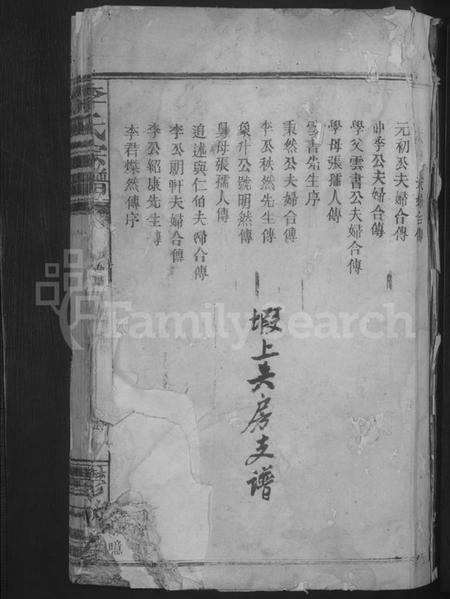 夫婦合傳
元初公夫婦合傳
中季公夫婦合傳
學父雲書公夫婦合傳
學母張孺人傳
雪書先生序
秉然公夫婦合傳
李公秩然先生傳
象升公號明然傳
舅母張孺人傳
追述與仁伯夫婦合傳
李公朗軒夫婦合傳
李公紹康先生傳
李君燦然傳序
塅上共房支譜
李氏宗譜
FamilySearch